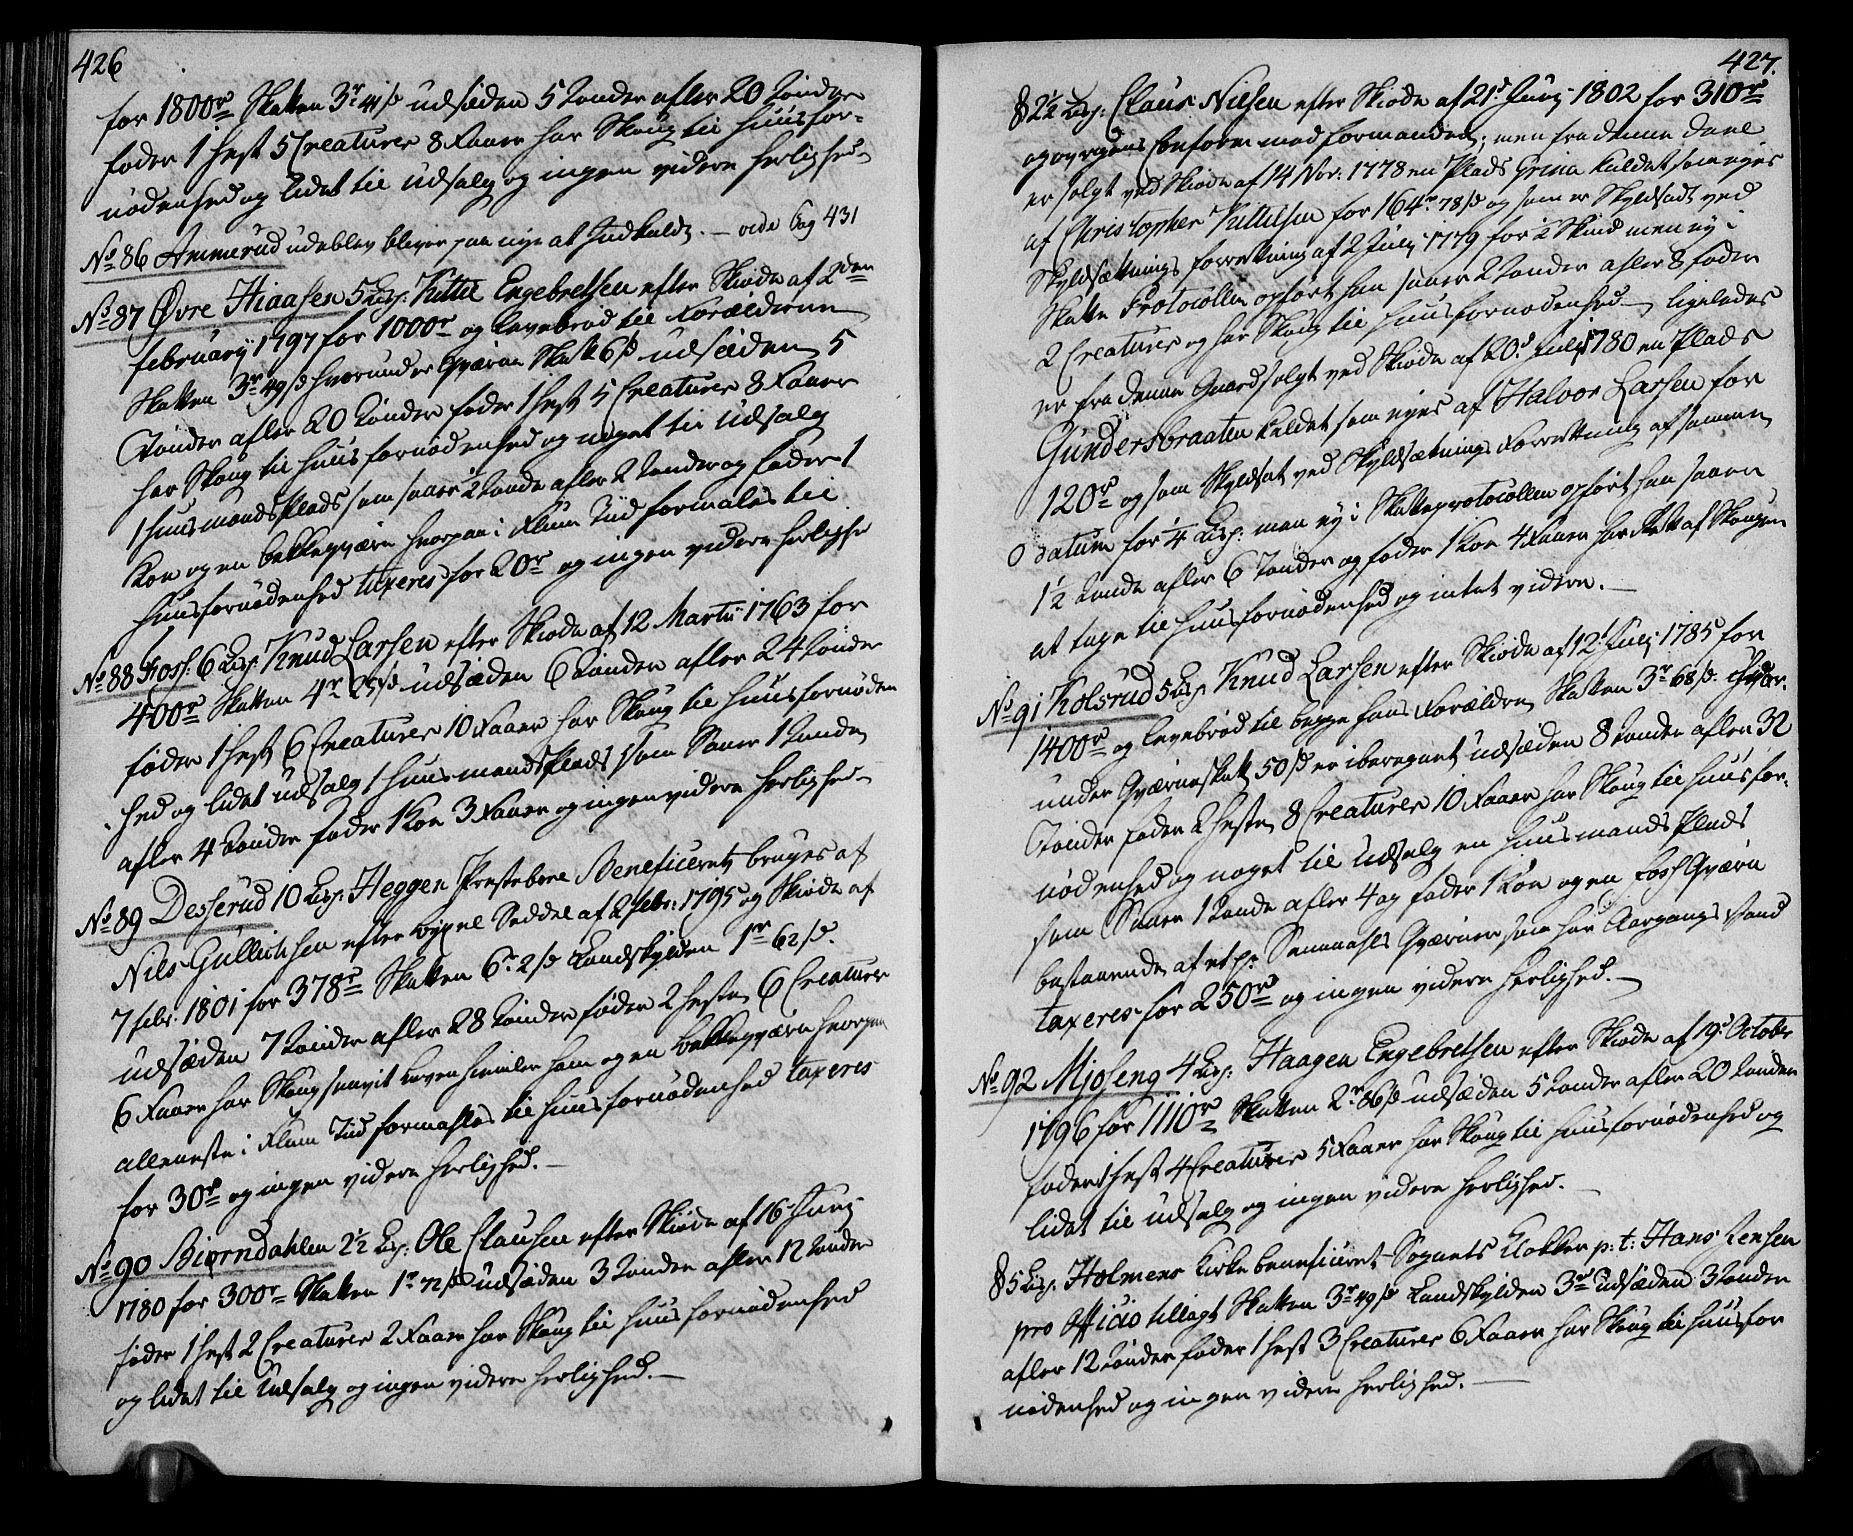 426
for 1800r Skatten 3r 41s udsæden 5 Tønder afler 20 Tønder
føder 1 Hest 5 Creaturer 8 Faaer har Skoug til Huusfor-
nødenhed og Lidet til Udsalg og ingen videre Herlighed
No 86 Ammerud udeblev bliver paa nye at Indkalde. — vide Pag 431
No 87 Øvre Hiaasen 5 Lisp: Kittil Engebretsen efter Skiøde af 2den
februarij 1797 for 1000r og Levebrød til Forældrene
Skatten 3r 49s hvorunder Qværne Skatt 6s udsæden 5
Tønder afler 20 Tønder føder 1 Hest 5 Creaturer 8 Faaer
har Skoug til Huusfornødenhed og noget til Udsalg
1 Huusmands Plads som saaer ½ Tønde afler 2 Tønder og føder 1
Koe og en bekkeqværn hvorpaa i Flum Tiid formales til
Huusfornødenhed taxeres for 20r og ingen videre herlighed
No 88 Foss: 6 Lisp: Knud Larsen efter Skiøde af 12 Martii 1763 for
400r Skatten 4r 25s udsæden 6 Tønder afler 24 Tønder
føder 1 Hest 6 Creaturer 10 Faaer har Skoug til Huusfornøden
hed og lidet udsalg 1 Huusmands Plads som Saaer 1 Tønde
afler 4 Tønder føder 1 Koe 3 Faaer og ingen videre Herlighed
No 89 Desserud 10 Lisp: Heggen Præstebore Beneficeret bruges af
Nils Gullichsen efter bygsel Seddel af 2 febr: 1795 og Skiøde af
7 febr: 1801 for 378r Skatten 6r 2s Landskylden 1r 62s.
udsæden 7 Tønder afler 28 Tønder føder 2 Heste 6 Creaturer
6 Faaer har Skoug saavit Loven hiemler ham og en bekkeqværn hvorpaa
alleneste i Flum Tiid formahles til Huusfornødenhed taxeres
for 30r og ingen videre Herlighed. —
No 90 Biørndahlen 2½ Lisp: Ole Clausen efter Skiøde af 16 Junj
1780 for 300r Skatten 1r 72s udsæden 3 Tønder afler 12 Tønder
føder 1 Hest 2 Creaturer 2 Faaer har Skoug til Huusfornødenhed
og lidet til Udsalg og ingen videre herlighed. —
427.
8 2½ Lisp: Claus Nilsen efter Skiøde af 21d Junj 1802 for 310r
og øvrigens Conform med formanden; men fra denne Deel
er solgt ved Skiøde af 14 Nov: 1778 en Plads Grina kaldet som eyes
af Christopher Kittilsen for 164r 78s og som er Skyldsadt ved
Skyldsætnings forretning af 2 Julj 1779 for 2 Skind men ey i
Skatte Protocollen opført han saaer 2 Tønder afler 8 føder
2 Creaturer og har Skoug til Huusfornødenhed — ligeledes
er fra denne Gaard solgt ved Skiøde af 20d Julj 1780 en Plads
Gundersbraaten kaldet som eyes af Halvor Larsen for
120r og som Skyldsat ved Skyldsætnings Forretning af samme
0 datum for ¼ Lisp: men ey i Skatteprotocollen opført han saaer
1½ Tønde afler 6 Tønder og føder 1 Koe 4 Faaer har Rett af Skougen
at tage til Huusfornødenhed og intet videre. —
No 91 Kolsrud 5 Lisp Knud Larsen efter Skiøde af 12d Julj 1785 for
1400r og Levebrød til begge hans Forældre Skatten 3r 68s. Hvor-
under Qværneskatt 50s er iberegnet udsæden 8 Tønder afler 32
Tønder føder 2 Heste 8 Creaturer 10 Faaer har Skoug til Huusfor-
nødenhed og noget til Udsalg en Huusmands Plads
som Saaer 1 Tønde afler 4 og føder 1 Koe og en Foss Qværn
bestaaende af et p: Sammahls Qværner som har Aargangs Vand
taxeres for 250r og ingen videre Herlighed. —
No 92 Mjøseng 4 Lisp: Haagen Engebretsen efter Skiøde af 19d October
1796 for 1110r Skatten 2r 86s udsæden 5 Tønder afler 20 Tønder
føder 1 Hest 4 Creaturer 5 Faaer har Skoug til Huusfornødenhed og
lidet til udsalg og ingen videre Herlighed. —
8 5 Lisp. Holmens Kirke beneficeret Sognets Klokker p: t: Hans Jensen
pro officio tillagt Skatten 3r 49s Landskylden 3r udsæden 3 Tønder
afler 12 Tønder føder 1 Hest 3 Creaturer 6 Faaer har Skoug til Huusfor
nødenhed og ingen videre Herlighed. —